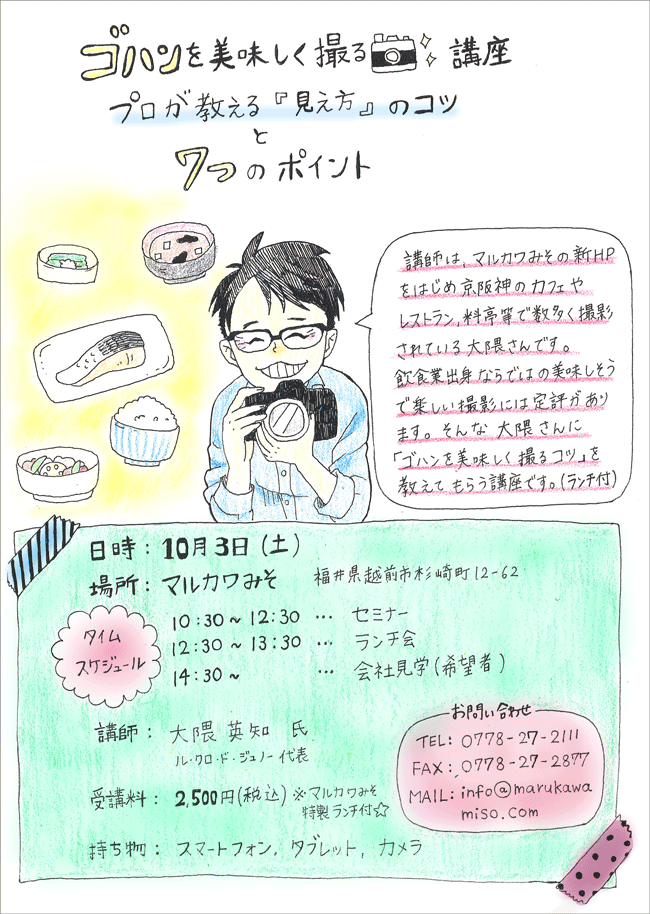 ゴハンを美味しく撮る 講座
プロが教える『見え方』のコツ
と
7つのポイント
講師は、マルカワみその新HP
をはじめ京阪神のカフェや
レストラン,料亭等で数多く撮影
されている大隈さんです。
飲食業出身ならではの美味しそう
で楽しい撮影には定評があり
ます。そんな大隈さんに
「ゴハンを美味しく撮るコツ」を
教えてもらう講座です。(ランチ付)
日時：10月3日(土)
場所：マルカワみそ 福井県越前市杉崎町12-62
タイム
スケジュール
10:30〜12:30 … セミナー
12:30〜13:30 … ランチ会
14:30〜 … 会社見学(希望者)
講師：大隈 英知 氏
ル・クロ・ド・ジュノー代表
受講料：2,500円(税込) ※マルカワみそ
特製ランチ付☆
持ち物：スマートフォン,タブレット,カメラ
お問い合わせ
TEL: 0778-27-2111
FAX: 0778-27-2877
MAIL: info@marukawa
miso.com